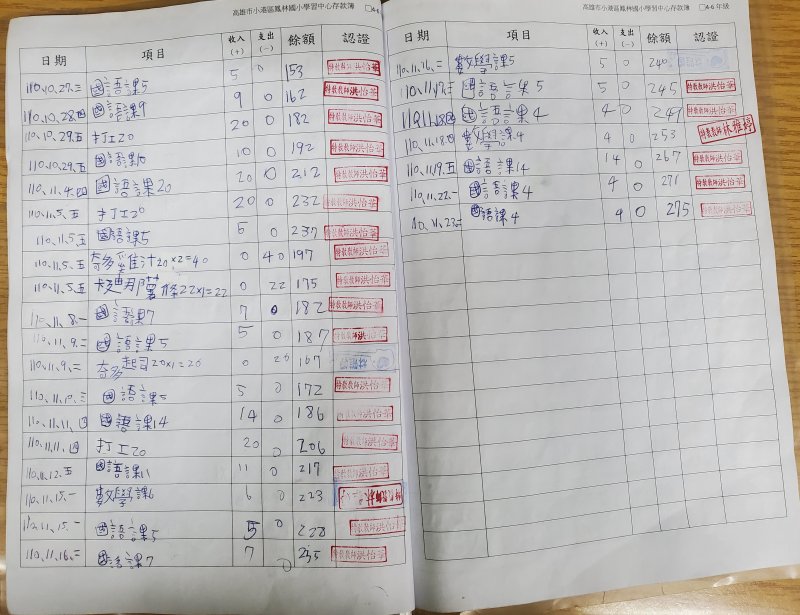 高雄市小港區鳳林國小學習中心存款簿 □4-6
日期 項目 收入(+) 支出(-) 餘額 認證
110.10.27.三 國語課5 5 0 153 特教教師洪怡華
110.10.28.四 國語課9 9 0 162 特教教師洪怡華
110.10.29.五 打工20 20 0 182 特教教師洪怡華
110.10.29.五 國語課10 10 0 192 特教教師洪怡華
110.11.4.四 國語課20 20 0 212 特教教師洪怡華
110.11.5.五 打工20 20 0 232 特教教師洪怡華
110.11.5.五 國語課5 5 0 237 特教教師洪怡華
110.11.5.五 奇多雞汁20×2=40 0 40 197 特教教師洪怡華
110.11.5.五 卡迪那薯條22×1=22 0 22 175 特教教師洪怡華
110.11.8.一 國語課7 7 0 182 特教教師洪怡華
110.11.9.二 國語課5 5 0 187 特教教師洪怡華
110.11.9.二 奇多起司20×1=20 0 20 167
110.11.10.三 國語課5 5 0 172 特教教師洪怡華
110.11.11.四 國語課14 14 0 186 特教教師洪怡華
110.11.11.四 打工20 20 0 206 特教教師洪怡華
110.11.12.五 國語課11 11 0 217 特教教師洪怡華
110.11.15.一 數學課6 6 0 223
110.11.15.一 國語課5 5 0 228 特教教師洪怡華
110.11.16.二 國語課7 7 0 235 特教教師洪怡華
高雄市小港區鳳林國小學習中心存款簿 □4-6年級
日期 項目 收入(+) 支出(-) 餘額 認證
110.11.16.二 數學課5 5 0 240
110.11.17.三 國語課5 5 0 245 特教教師洪怡華
110.11.18.四 國語課4 4 0 249 特教教師洪怡華
110.11.18.四 數學課4 4 0 253 特教教師林雅婷
110.11.19.五 國語課14 14 0 267 特教教師洪怡華
110.11.22.一 國語課4 4 0 271 特教教師洪怡華
110.11.23.二 國語課4 4 0 275 特教教師洪怡華